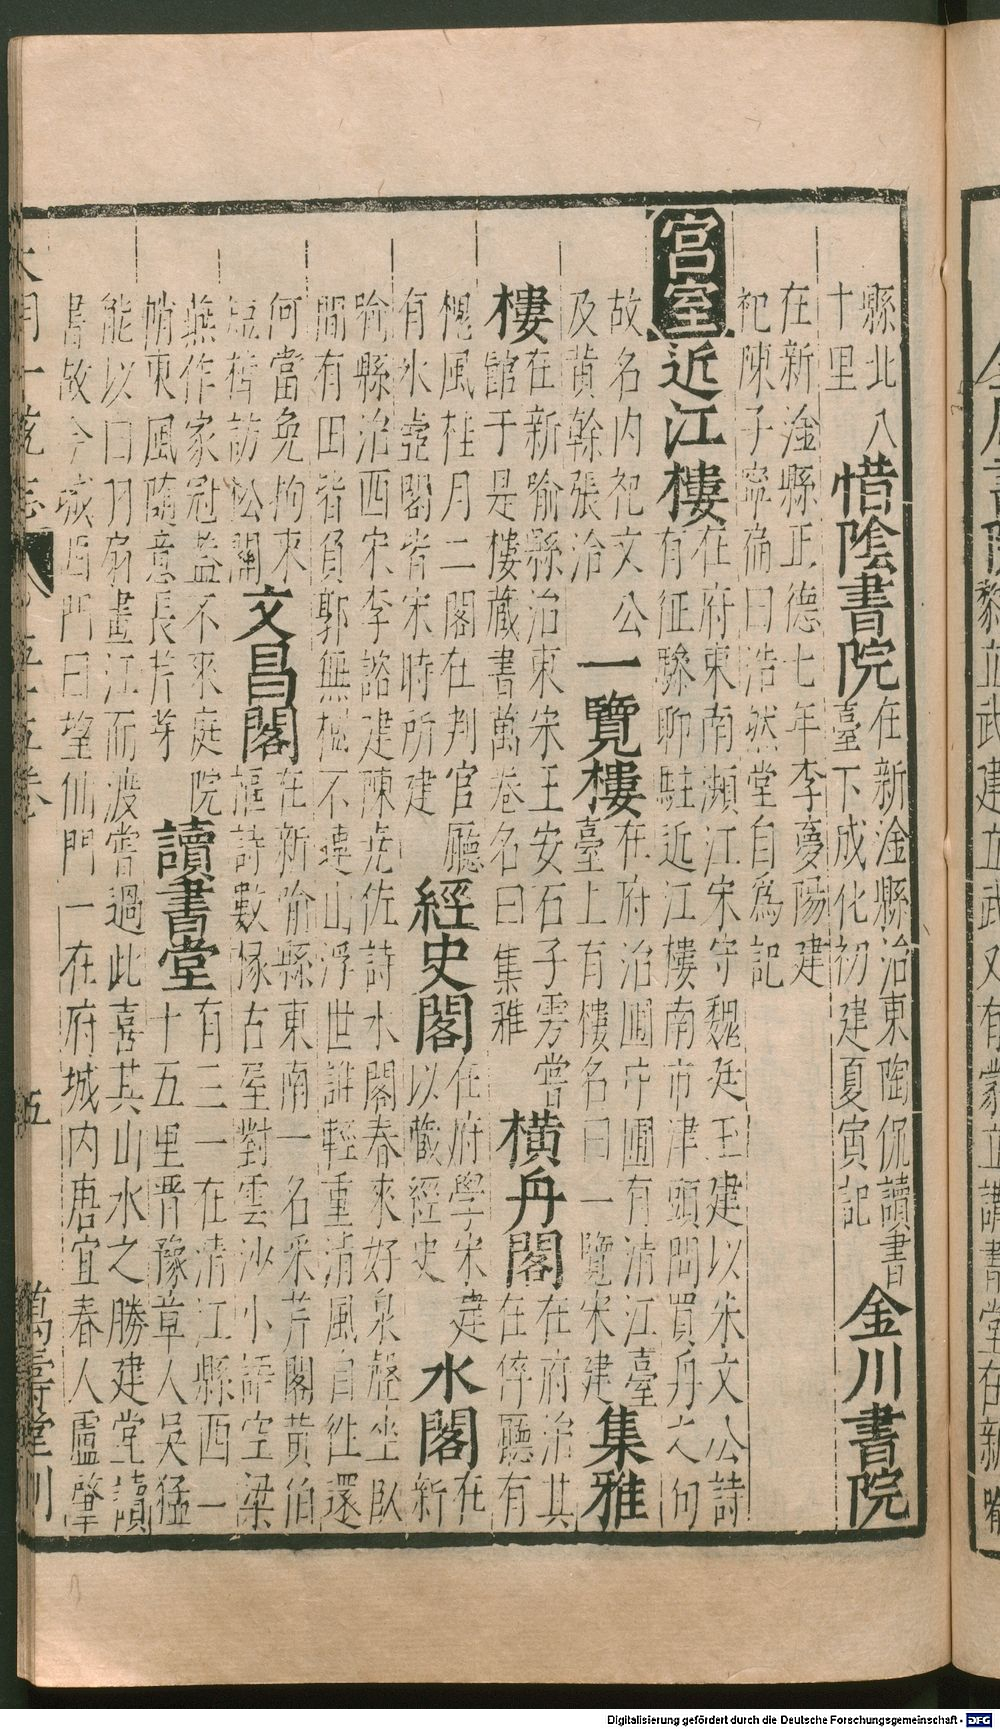 縣北八
十里
惜陰書院
在新淦縣治東陶侃讀書
臺下成化初建夏寅記
金川書院
在新淦縣正德七年李夢陽建
祀陳子寧扁曰浩然堂自為記
宮室
近江樓
在府東南瀕江宋守魏廷玉建以朱文公詩
有征驂聊駐近江樓南市津頭問買舟之句
故名内祀文公
及黃榦張洽
一覽樓
在府治圃中圃有清江臺
臺上有樓名曰一覽宋建
集雅
樓
在新喻縣治東宋王安石子雱嘗
館于是樓藏書萬卷名曰集雅
橫舟閣
在府治其
在倅廳有
槐風桂月二閣在判官廳
有水壺閣皆宋時所建
經史閣
在府學宋建
以藏經史
水閣
在
新
喻縣治西宋李諮建陳堯佐詩水閣春來好泉聲坐臥
間有田皆負郭無檻不連山浮世誰輕重清風自往還
何當免拘束
短棹訪松關
文昌閣
在新喻縣東南一名采芹閣黃伯
樞詩數椽古屋對雲沙小語空梁
燕作家冠蓋不來庭院
悄東風隨意長芹芽
讀書堂
有三一在清江縣西一
十五里晉豫章人吳猛
能以白羽扇畫江而渡嘗過此喜其山水之勝建堂讀
書故今城西門曰望仙門一在府城内唐宜春人盧肇
大明一統志 五十五卷 五 萬壽堂刊
Digitalisierung gefördert durch die Deutsche Forschungsgemeinschaft - DFG